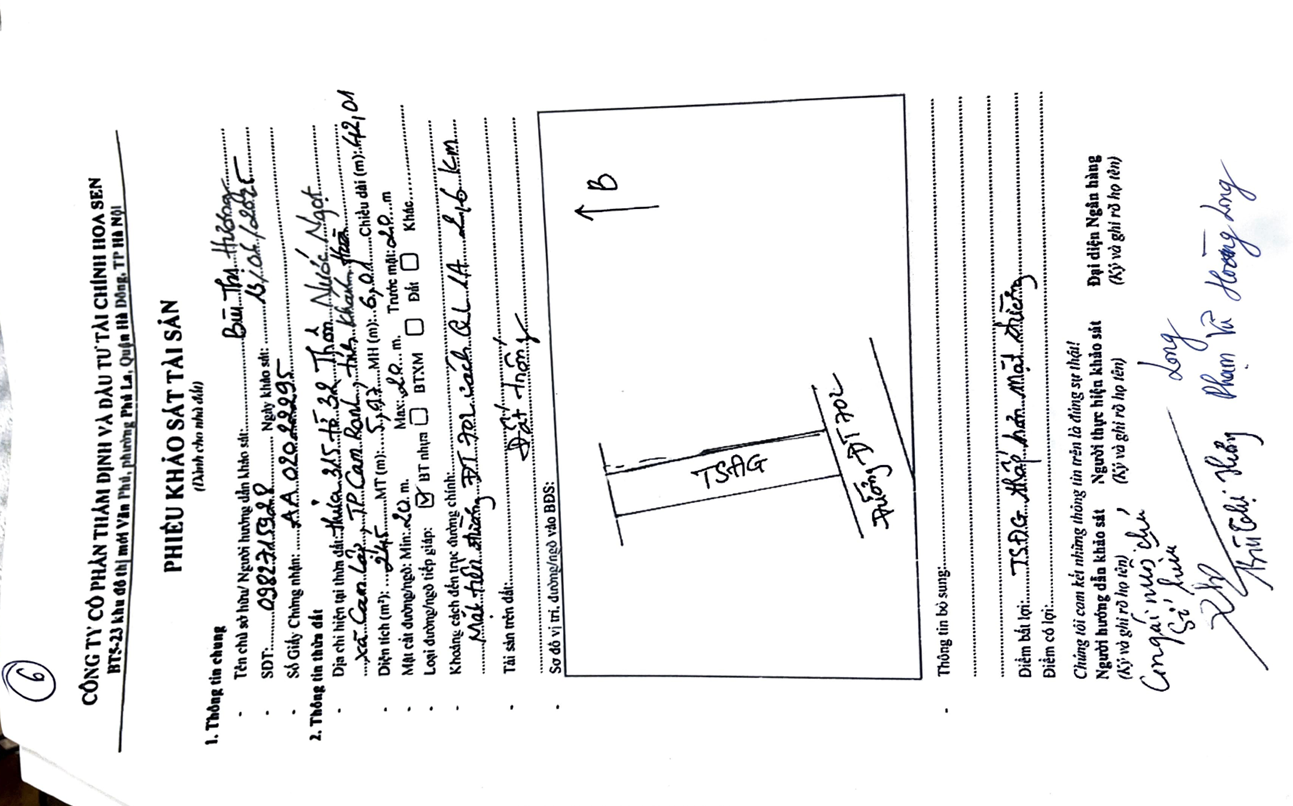 6
CÔNG TY CỔ PHẦN THẨM ĐỊNH VÀ ĐẦU TƯ TÀI CHÍNH HOA SEN
BTS-23 khu đô thị mới Văn Phú, phường Phú La, Quận Hà Đông, TP Hà Nội
PHIẾU KHẢO SÁT TÀI SẢN
(Dành cho nhà đất)
1. Thông tin chung
- Tên chủ sở hữu/ Người hướng dẫn khảo sát: Bùi Thị Hương
- SĐT: 0982715928 Ngày khảo sát: 13/06/2025
- Số Giấy Chứng nhận: AA 02022295
2. Thông tin thửa đất
- Địa chỉ hiện tại thửa đất: thửa 315 tờ 32 Thôn Nước Ngọt
xã Cam Lập, TP. Cam Ranh, tỉnh Khánh Hòa
- Diện tích (m²): 245 MT (m): 5,97 MH (m): 6,01 Chiều dài (m): 42,01
- Mặt cắt đường/ngõ: Min: 20 m. Max: 20 m. Trước mặt: 20 m
- Loại đường/ngõ tiếp giáp: ☑ BT nhựa ☐ BTXM ☐ Đất ☐ Khác
- Khoảng cách đến trục đường chính:
Mặt tiền đường ĐT 702 cách QL 1A 2,6 km
- Tài sản trên đất: Đất trống
- Sơ đồ vị trí, đường/ngõ vào BĐS:
B
TSĐG
Đường ĐT 702
- Thông tin bổ sung:
Điểm bất lợi: TSĐG thấp hơn mặt đường
Điểm có lợi:
Chúng tôi cam kết những thông tin trên là đúng sự thật!
Người hướng dẫn khảo sát Người thực hiện khảo sát Đại diện Ngân hàng
(Ký và ghi rõ họ tên) (Ký và ghi rõ họ tên) (Ký và ghi rõ họ tên)
Con gái chủ
Sở hữu
Long
Phạm Vũ Hoàng Long